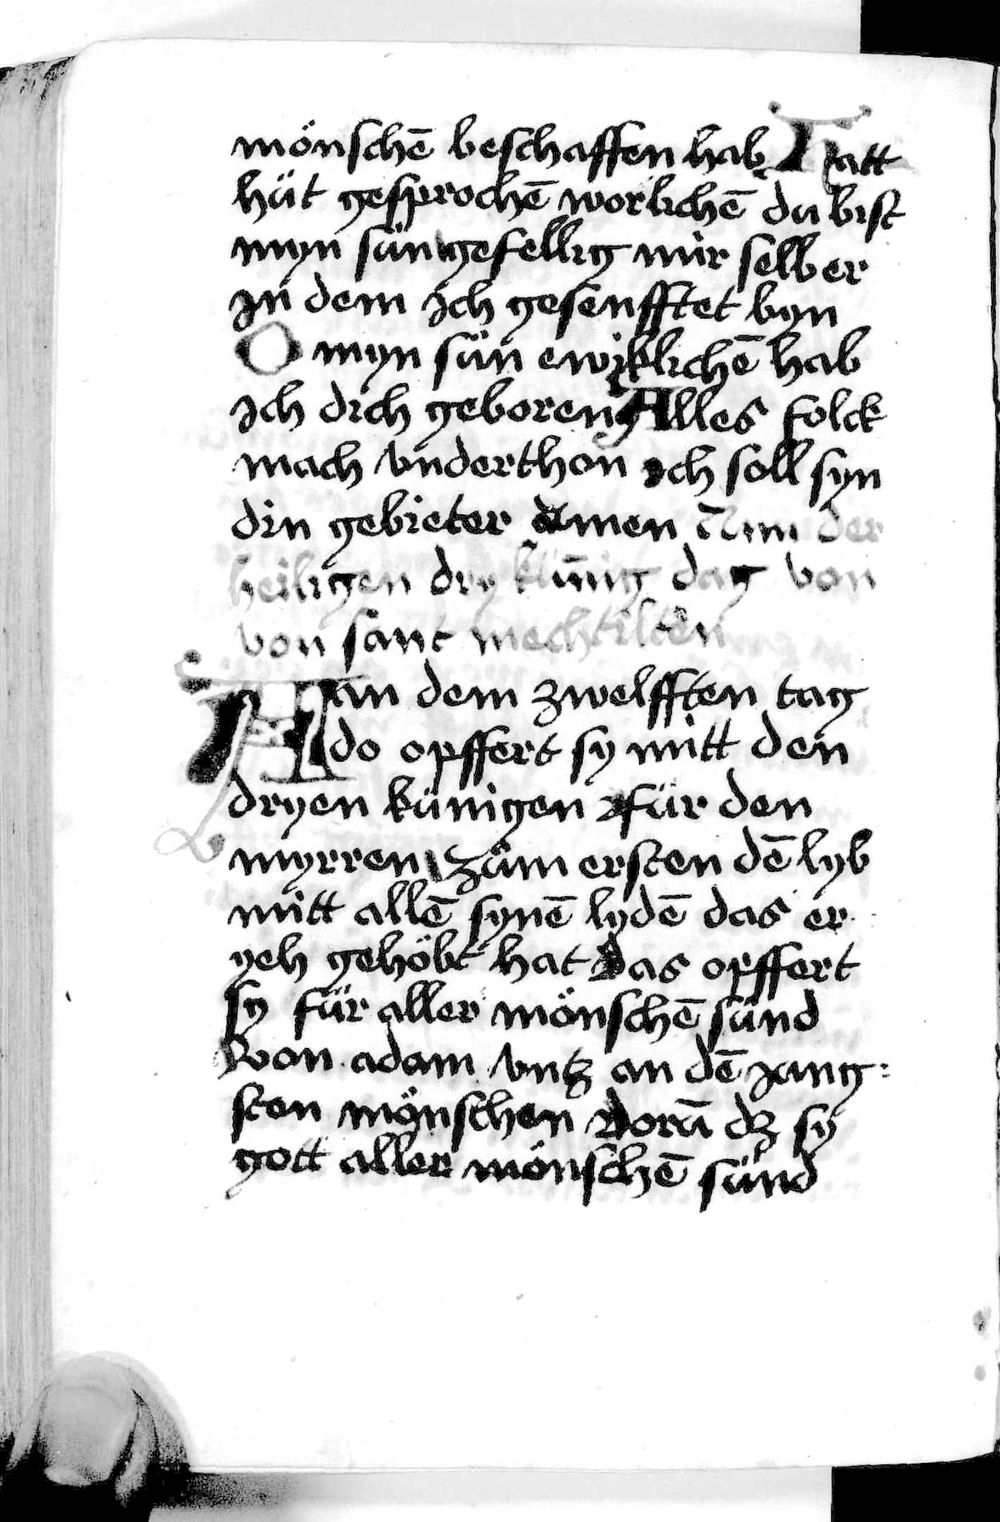 mönschē beschaffen hab Hatt
hüt gesprochē worlichē du bist
myn sün gefellig mir selber
jn dem ich gesenfftet byn
O myn sün ewiklichē hab
ich dich geboren Alles folck
mach vnderthon ich soll syn
din gebieter amen Am der
heiligen dry künig dag von
von sant mechtilten
An dem zwelfften tag
do opffert sy mitt den
dryen künigen für den
myrren zům ersten dē lyb
mitt allē synē lydē das er
yeh gehöbt hat das opffert
sy für aller mönschē sünd
von adam vntz an dē jung:
sten mönschen dorū dz sy
gott aller mönschē sünd